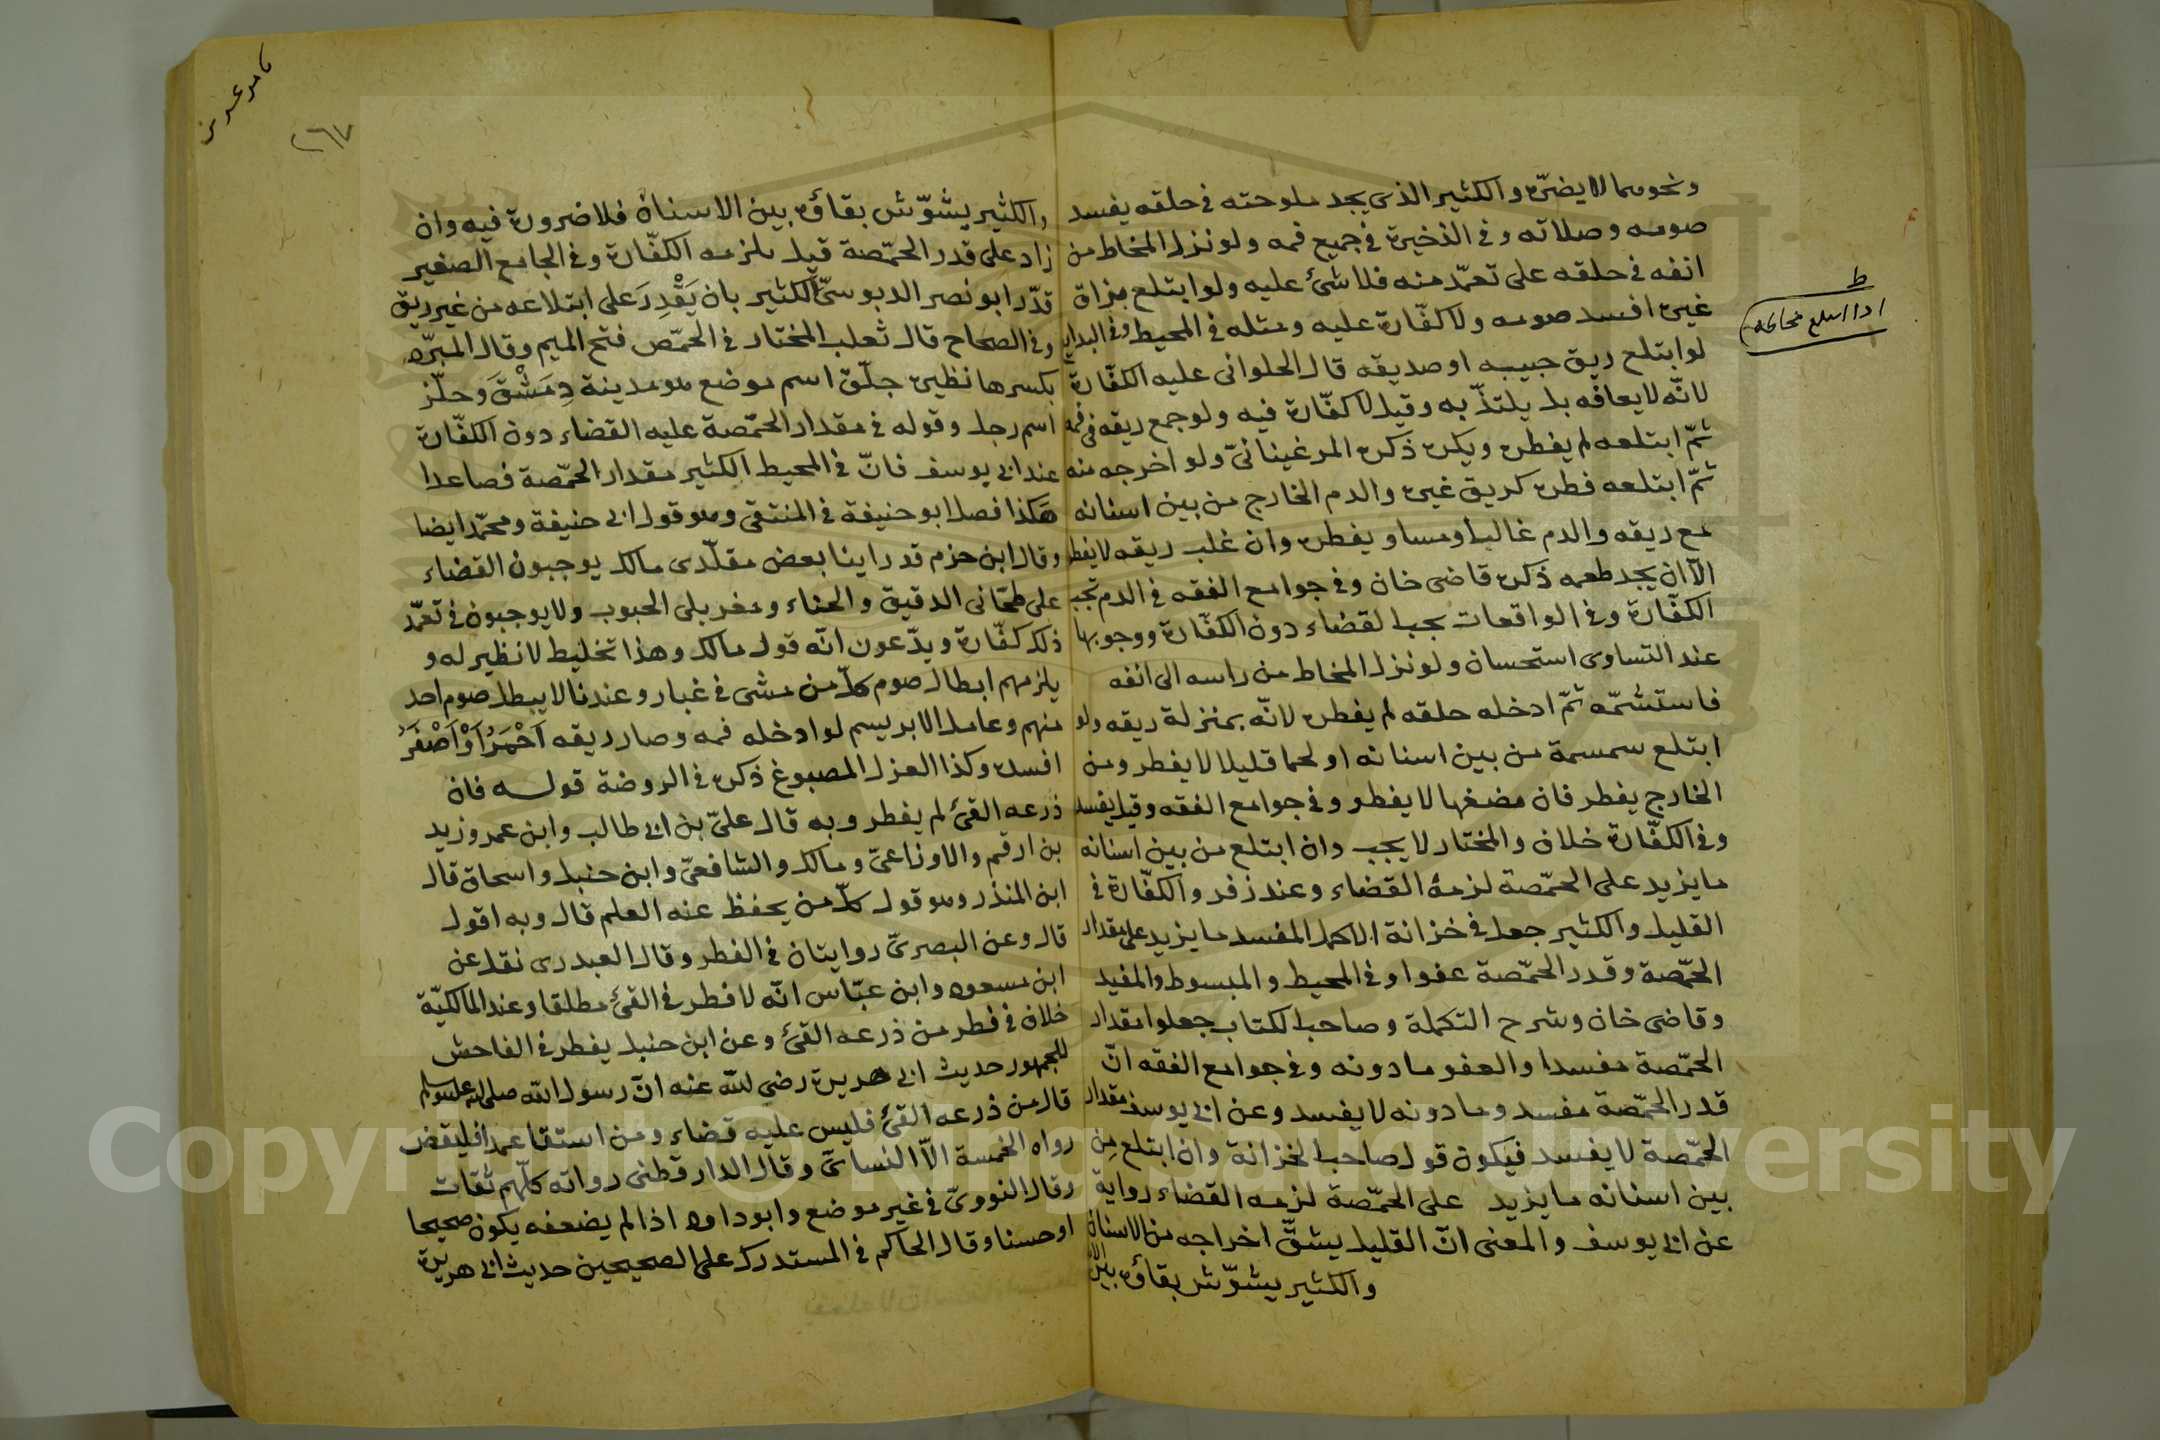 ونحوهما لا يضرّه والكثير الذى يجد ملوحته فى حلقه يفسد
صومه وصلاته وفى الذخيرة فى جميع فمه ولو نزل المخاط من
انفه فى حلقه على تعمّد منه فلا شئ عليه ولو ابتلع بزاق
غيره افسد صومه ولا كفّارة عليه ومثله فى المحيط وفى البدايع
لو ابتلع ريق حبيبه او صديقه قال الحلوانى عليه الكفّارة
لانّه لا يعافه بل يلتذّ به وقيل لا كفّارة فيه ولو جمع ريقه فى فمه
ثمّ ابتلعه لم يفطره ويكره ذكره المرغينانىّ ولو اخرجه منه
ثمّ ابتلعه فطره كريق غيره والدم الخارج من بين اسنانه
مع ريقه والدم غالب او مساو يفطره وان غلب ريقه لا يفطر
الّا ان يجد طعمه ذكره قاضى خان وفى جوامع الفقه فى الدم تجب
الكفّارة وفى الواقعات يجب القضاء دون الكفّارة ووجوبها
عند التساوى استحسان ولو نزل المخاط من راسه الى انفه
فاستشمّه ثمّ ادخله حلقه لم يفطره لانّه بمنزلة ريقه ولو
ابتلع سمسمة من بين اسنانه او لحما قليلا لا يفطر ومن
الخارج يفطر فان مضغها لا يفطر وفى جوامع الفقه وقيل يفسد
وفى الكفّارة خلاف والمختار لا يجب وان ابتلع من بين اسنانه
ما يزيد على الحمّصة لزمه القضاء وعند زفر والكفّارة فى
القليل والكثير جعل فى خزانة الاكمل المفسد ما يزيد على مقدار
الحمّصة وقدر الحمّصة عفوا وفى المحيط والمبسوط والمفيد
وقاضى خان وشرح التكملة وصاحب الكتاب جعلوا مقدار
الحمّصة مفسدا والعفو ما دونه وفى جوامع الفقه انّ
قدر الحمّصة مفسد وما دونه لا يفسد وعن ابى يوسف مقدار
الحمّصة لا يفسد فيكون قول صاحب الخزانة وان ابتلع من
بين اسنانه ما يزيد على الحمّصة لزمه القضاء رواية
عن ابى يوسف والمعنى انّ القليل يشقّ اخراجه من الاسنان
والكثير يشوّش بقاؤه بين
اذا ابتلع مخاطه
٢٦٧
والكثير يشوّش بقاؤه بين الاسنان فلا ضرورة فيه وان
زاد على قدر الحمّصة قيل يلزمه الكفّارة وفى الجامع الصغير
قدّر ابو نصر الدبوسىّ الكثير بان يَقْدِرَ على ابتلاعه من غير ريق
وفى الصحاح قال ثعلب المختار فى الحمّص فتح الميم وقال المبرّد
بكسرها نظيره جلّق اسم موضع هو مدينة دِمَشْقَ وحلّز
اسم رجل وقوله فى مقدار الحمّصة عليه القضاء دون الكفّارة
عند ابى يوسف فانّ فى المحيط الكثير مقدار الحمّصة فصاعدا
هَكذا فصل ابو حنيفة فى المنتقى وهو قول ابى حنيفة ومحمّد ايضا
وقال ابن حزم قد راينا بعض مقلّدى مالك يوجبون القضاء
على طحّانى الدقيق والحناء ومغربلى الحبوب ولا يوجبون فى تعمّد
ذلك كفّارة ويدّعون انّه قول مالك وهذا تخليط لا نظير له و
يلزمهم ابطال صوم كلّ من مشى فى غبار وعندنا لا يبطل صوم احد
منهم وعامل الابريسم لو ادخله فمه وصار ريقه اَحْمَرُ اَوْ اَصْفَرُ
افسده وكذا الغزل المصبوغ ذكره فى الروضة قوله فان
ذرعه القئ لم يفطر وبه قال علىّ بن ابى طالب وابن عمر وزيد
بن ارقم والاوزاعىّ ومالك والشافعىّ وابن حنبل واسحاق قال
ابن المنذر وهو قول كلّ من يحفظ عنه العلم قال وبه اقول
قال وعن البصرىّ روايتان فى الفطر وقال العبدرى نقل عن
ابن مسعود وابن عبّاس انّه لا فطر فى القئ مطلقا وعند المالكيّة
خلاف فى فطر من ذرعه القئ وعن ابن حنبل يفطر فى الفاحش
للجمهور حديث ابى هريرة رضى الله عنه انّ رسول الله صلى الله عليه وسلم
قال من ذرعه القئ فليس عليه قضاء ومن استقا عمدا فليقض
رواه الخمسة الّا النسائىّ وقال الدارقطنى رواته كلّهم ثقات
وقال النووىّ فى غير موضع وابو داود اذا لم يضعفه يكون صحيحا
او حسنا وقال الحاكم فى المستدرك على الصحيحين حديث ابى هريرة
Copyright © King Saud University